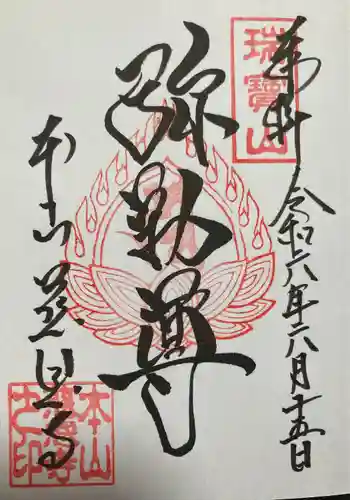 奉拝
瑞寳山
令和六年六月十五日
弥勒尊
本山慈恩寺
本山慈恩寺之印